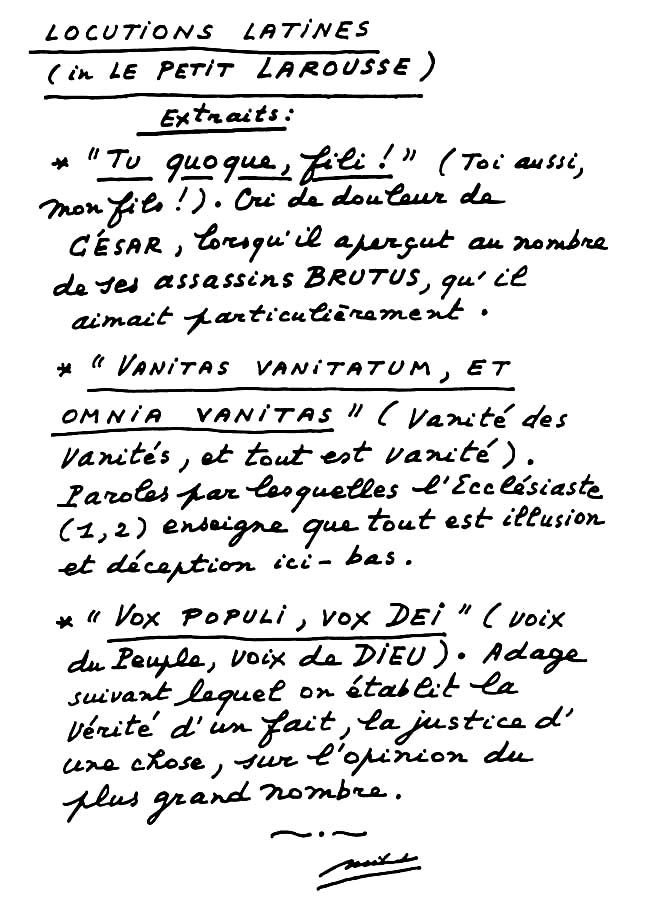 LOCUTIONS LATINES
(in LE PETIT LAROUSSE)
Extraits:
* "Tu quoque, fili!" (Toi aussi,
mon fils!). Cri de douleur de
CÉSAR, lorsqu'il aperçut au nombre
de ses assassins BRUTUS, qu'il
aimait particulièrement.
* "VANITAS VANITATUM, ET
OMNIA VANITAS" (Vanité des
Vanités, et tout est vanité).
Paroles par lesquelles l'Ecclésiaste
(1,2) enseigne que tout est illusion
et déception ici-bas.
* "VOX POPULI, VOX DEI" (voix
du Peuple, voix de DIEU). Adage
suivant lequel on établit la
vérité d'un fait, la justice d'
une chose, sur l'opinion du
plus grand nombre.